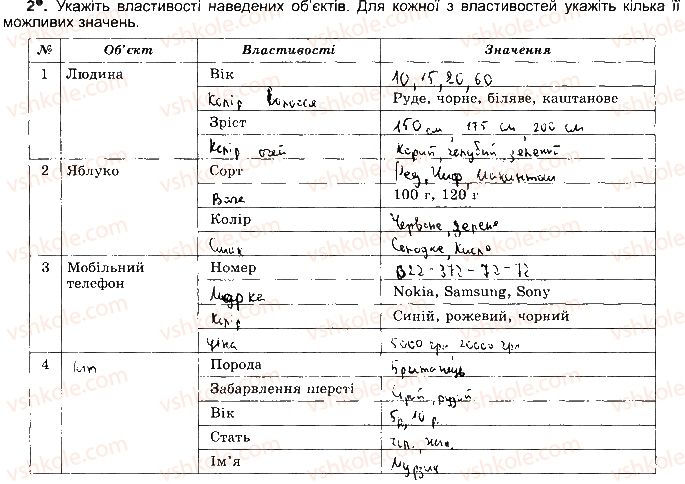 2•. Укажіть властивості наведених об'єктів. Для кожної з властивостей укажіть кілька її
можливих значень.
№ Об'єкт Властивості Значення
1 Людина Вік 10, 15, 20, 60
Колір волосся Руде, чорне, біляве, каштанове
Зріст 150 см, 175 см, 200 см
Колір очей Карий, голубий, зелений
2 Яблуко Сорт
Вага 100 г, 120 г
Колір Червоне, зелене
Смак Солодке, Кисле
3 Мобільний Номер
телефон
Марка Nokia, Samsung, Sony
Колір Синій, рожевий, чорний
Ціна 5000 грн 20000 грн
4 Кіт Порода Британець
Забарвлення шерсті Сірий, рудий
Вік 5р, 10 р.
Стать чол., жін.
Ім'я Мурзик
vshkole.com